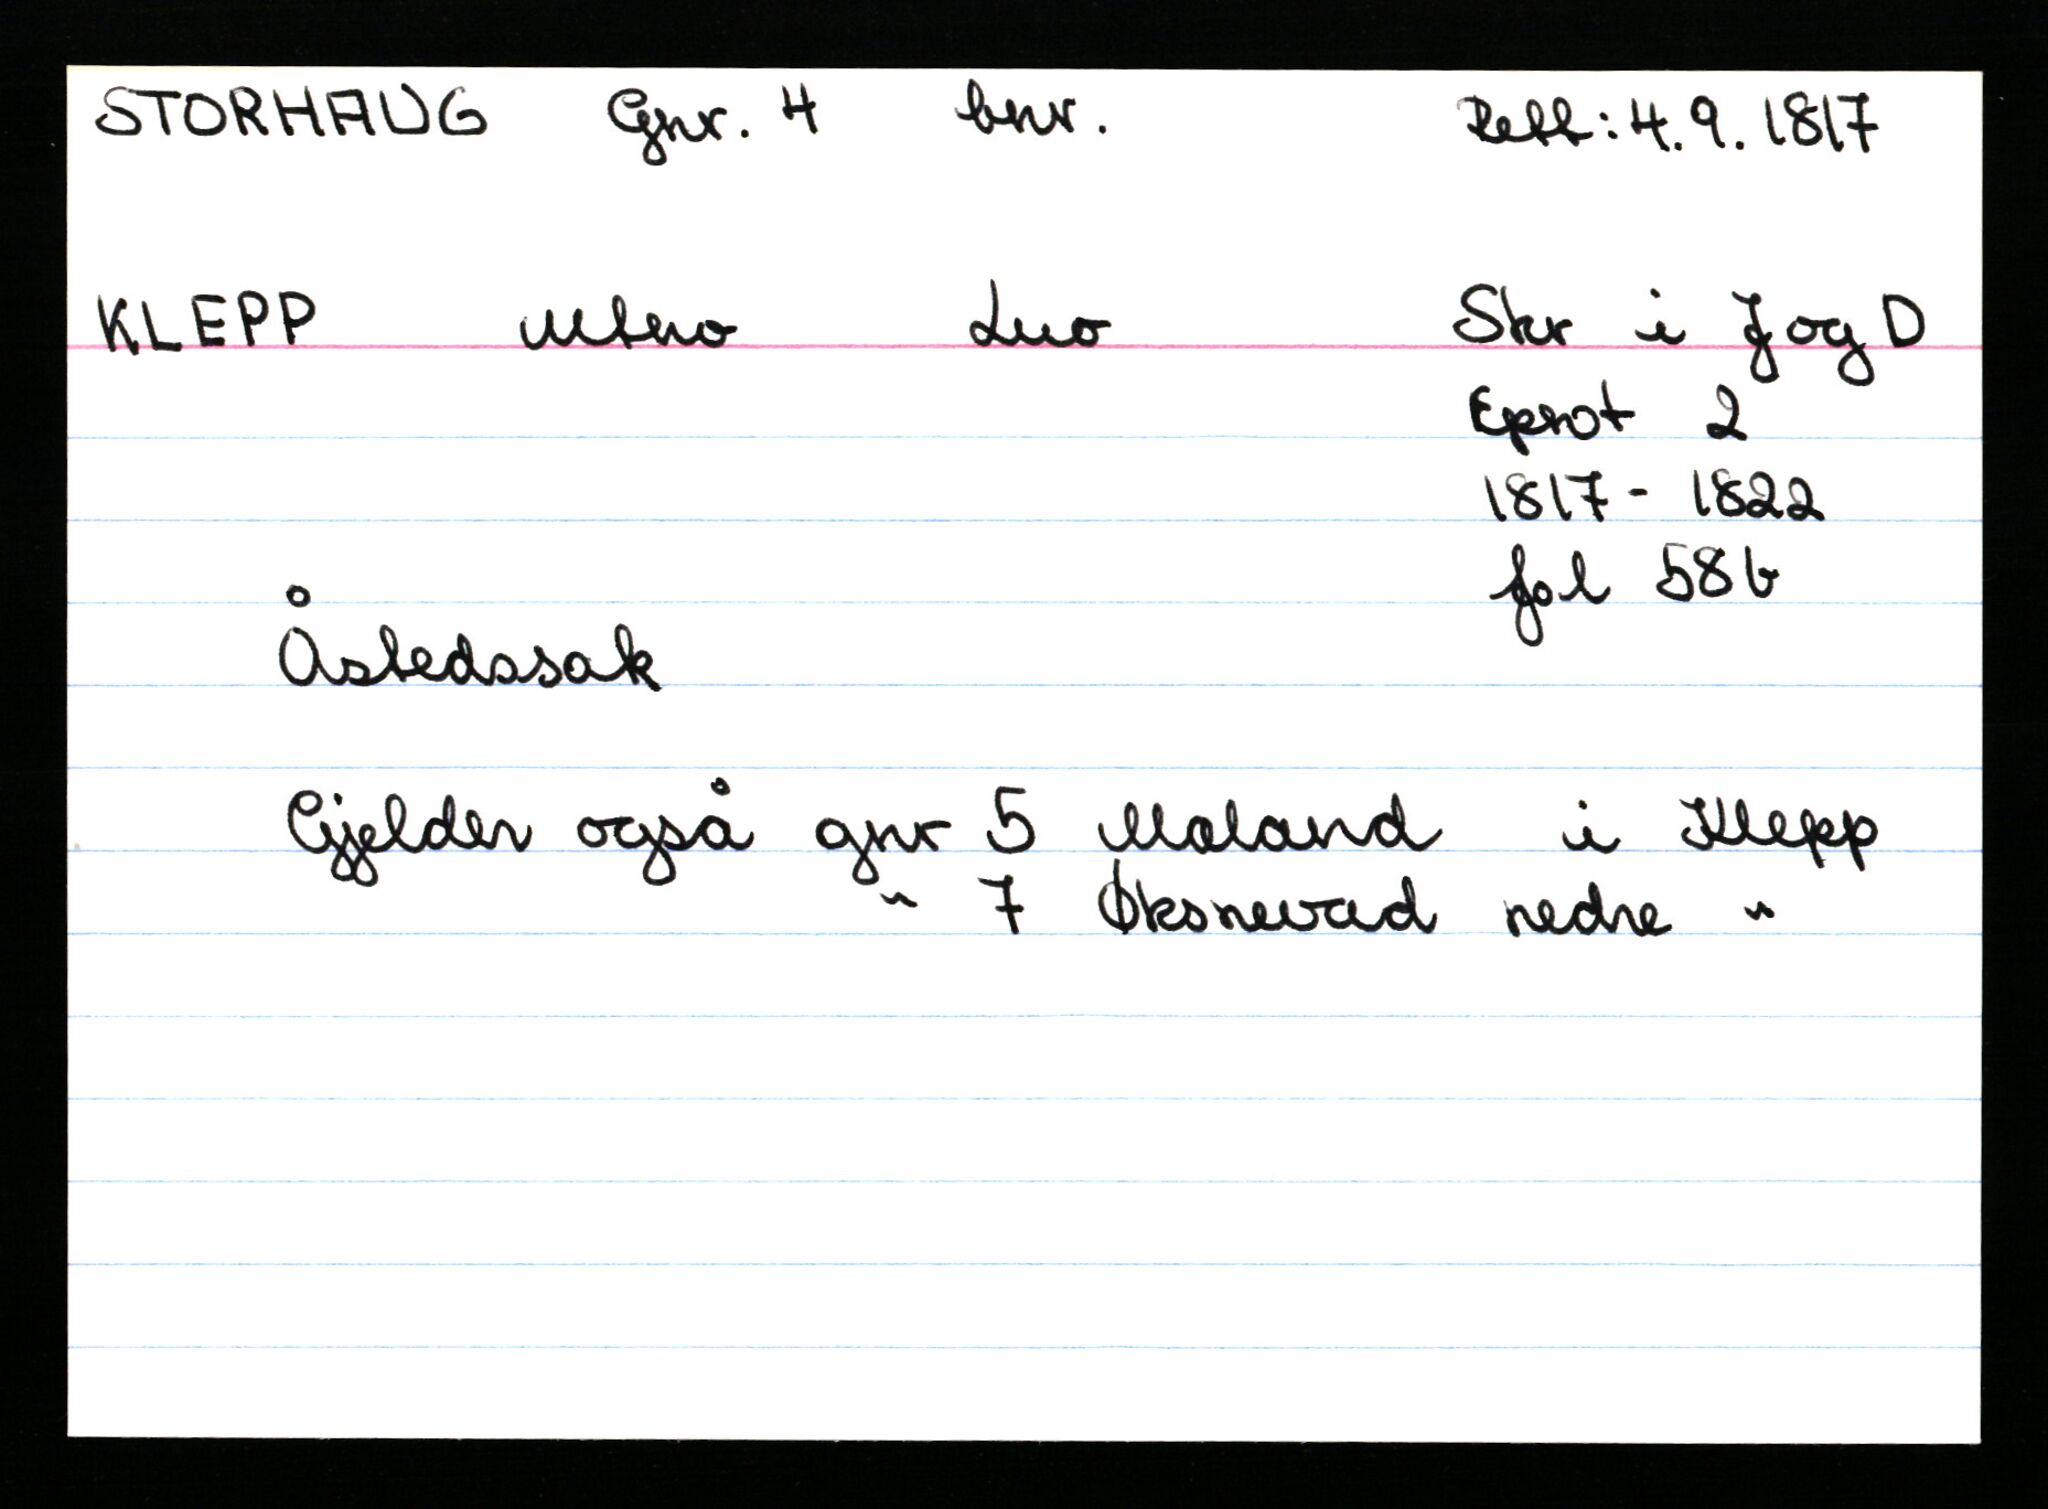 STORHAUG Gnr. 4 bnr. Rett: 4.9.1817
KLEPP Mtno Lno Skr i J og D
Eprot 2
1817 - 1822
fol 58b
Åstedssak
Gjelder også gnr 5 Maland i Klepp
" 7 Øksnevad nedre "